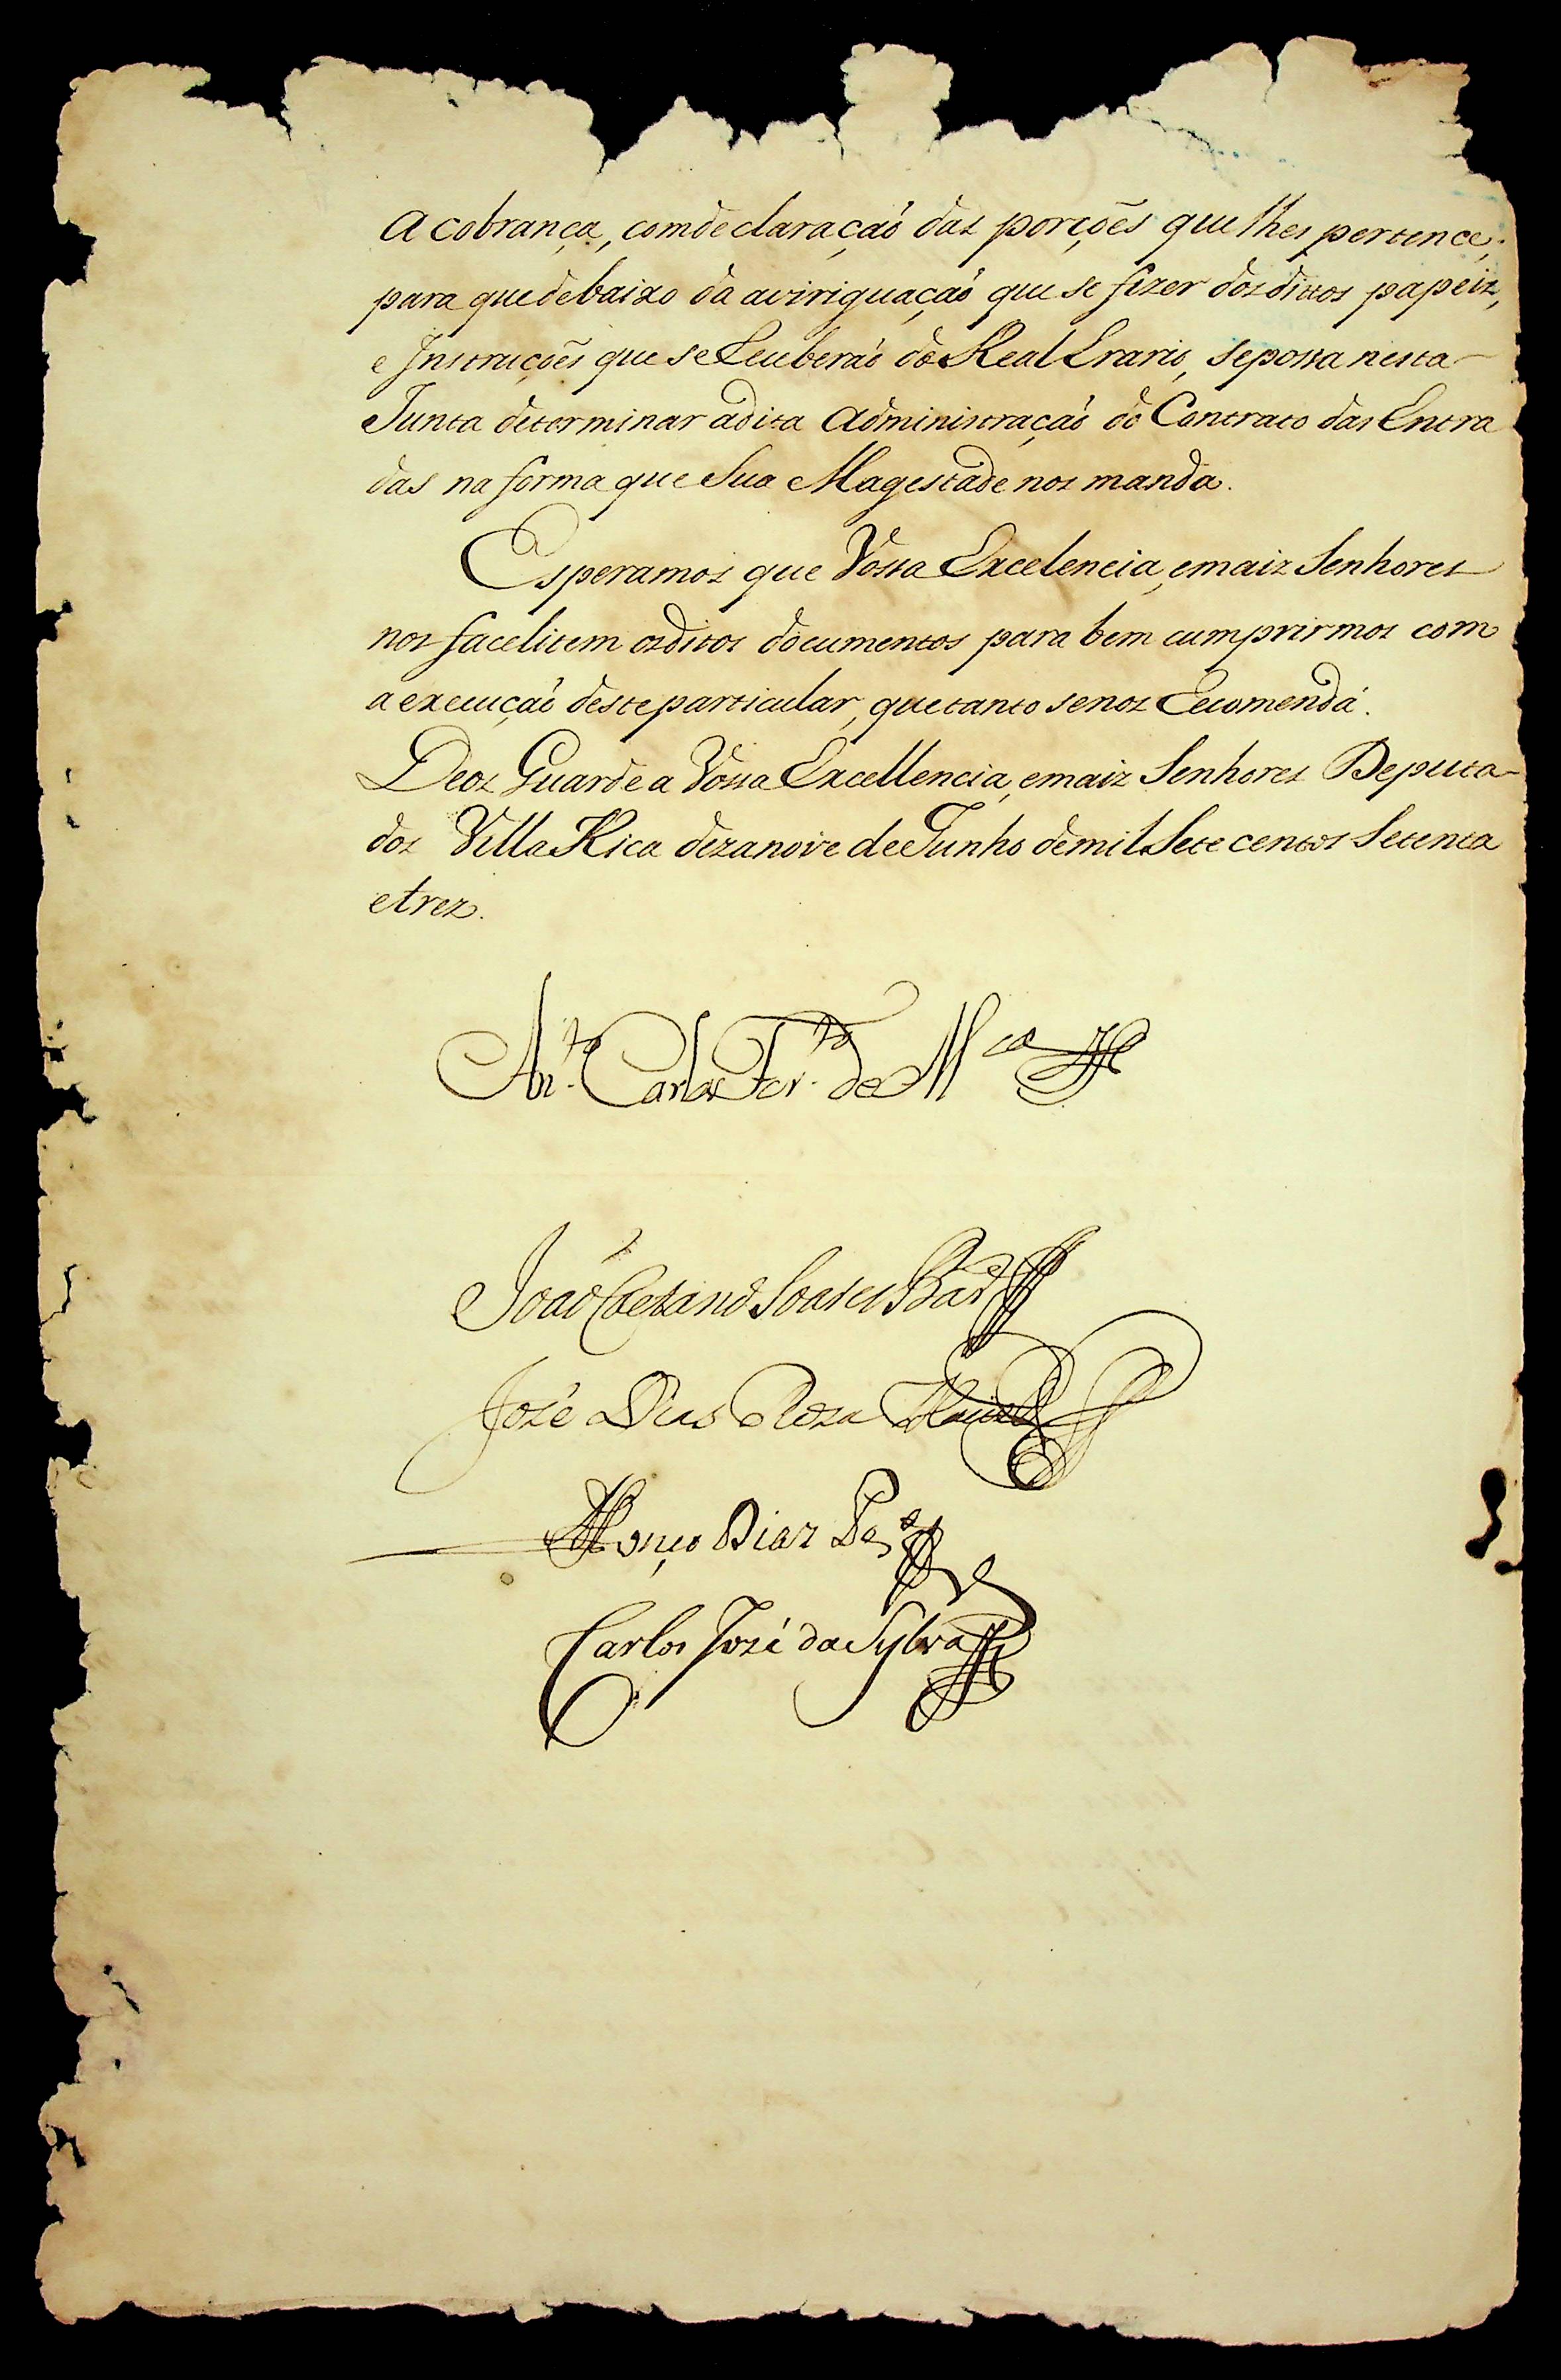 a cobrança, com declaração das porções que lhes pertence,
para que debaixo da aviriguação que se fizer dos dittos papeiz,
e Instruçoẽs que se Receberaõ do Real Erario, se possa nesta
Junta determinar a dita Administração do Contrato das Entra
das na forma que Sua Magestade nos manda.
Esperamos que Vossa Excelencia, e maiz Senhores
nos facelitem os ditos documentos para bem cumprirmos com
a execução deste particular, que tanto se nos Recomenda.
Deos Guarde a Vossa Excellencia, e maiz Senhores Deputa-
dos Villa Rica dezanove de Junho de mil Sete centos Setenta
e trez.
An.to Carlos Fur.do de M.ca
João Caetano Soares Bar.to
José Dias Roza Maciel
Affonço Diaz Per.a
Carlos José da Sylva